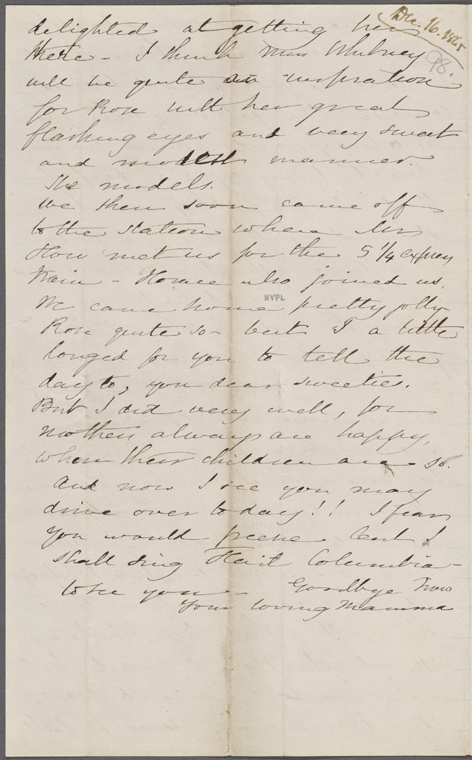 Dec. 16. 1865
98.
delighted at getting her
there - I think Miss Whitney
will be quite an inspiration
for Rose with her great
flashing eyes and very sweet
and modest manner.
She models.
We then soon came off
to the Station where Mr
How met us for the 5 1/4 express
train - Horace who joined us.
NYPL
We came home pretty jolly
Rose quite so - but I a little
longed for you to tell the
day to, you dear sweeties.
But I did very well, for
mothers always are happy,
when their children are so.
And now I see you may
drive over today!! I fear
you would freeze but I
shall sing Hail Columbia -
to see you - Goodbye now
Your loving Mamma